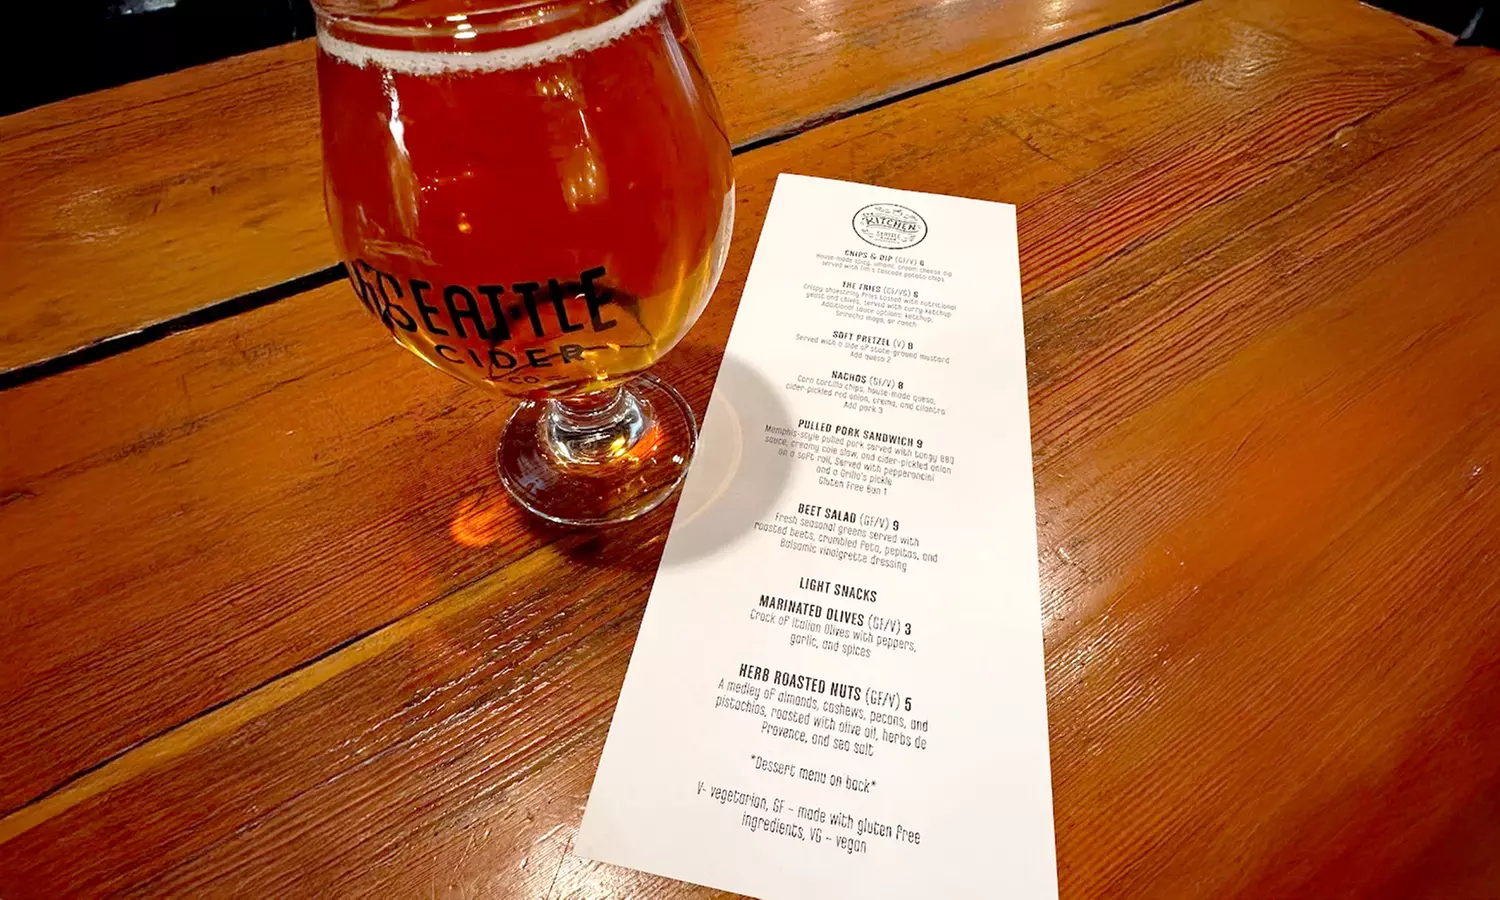 SEATTLE
CIDER
CO
KITCHEN
SEATTLE
CIDER
CHIPS & DIP (GF/V) 6
House-made spicy, umami, cream cheese dip
served with Tim's cascade potato chips
THE FRIES (GF/VG) 6
Crispy shoestring fries tossed with nutritional
yeast and chives, served with curry ketchup
Additional sauce options: ketchup,
Sriracha mayo, or ranch
SOFT PRETZEL (V) 8
Served with a side of stone-ground mustard
Add queso 2
NACHOS (GF/V) 8
Corn tortilla chips, house-made queso,
cider-pickled red onion, crema, and cilantro
Add pork 3
PULLED PORK SANDWICH 9
Memphis-style pulled pork served with tangy BBQ
sauce, creamy cole slaw, and cider-pickled onion
on a soft roll. Served with pepperoncini
and a Grillo's pickle
Gluten Free Bun 1
BEET SALAD (GF/V) 9
Fresh seasonal greens served with
roasted beets, crumbled feta, pepitas, and
Balsamic vinaigrette dressing
LIGHT SNACKS
MARINATED OLIVES (GF/V) 3
Crock of Italian Olives with peppers,
garlic, and spices
HERB ROASTED NUTS (GF/V) 5
A medley of almonds, cashews, pecans, and
pistachios, roasted with olive oil, herbs de
Provence, and sea salt
*Dessert menu on back*
V- vegetarian, GF - made with gluten free
ingredients, VG - vegan